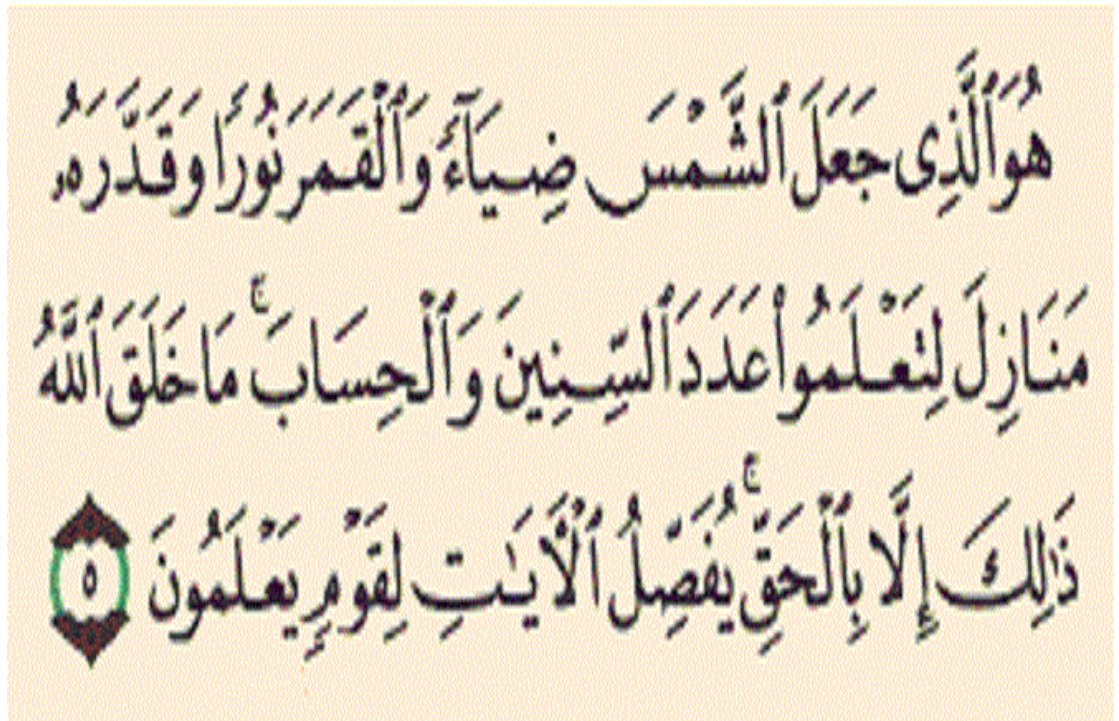 هُوَ ٱلَّذِى جَعَلَ ٱلشَّمْسَ ضِيَآءً وَٱلْقَمَرَ نُورًا وَقَدَّرَهُۥ
مَنَازِلَ لِتَعْلَمُوا۟ عَدَدَ ٱلسِّنِينَ وَٱلْحِسَابَ ۚ مَا خَلَقَ ٱللَّهُ
ذَٰلِكَ إِلَّا بِٱلْحَقِّ ۚ يُفَصِّلُ ٱلْـَٔايَـٰتِ لِقَوْمٍ يَعْلَمُونَ ٥